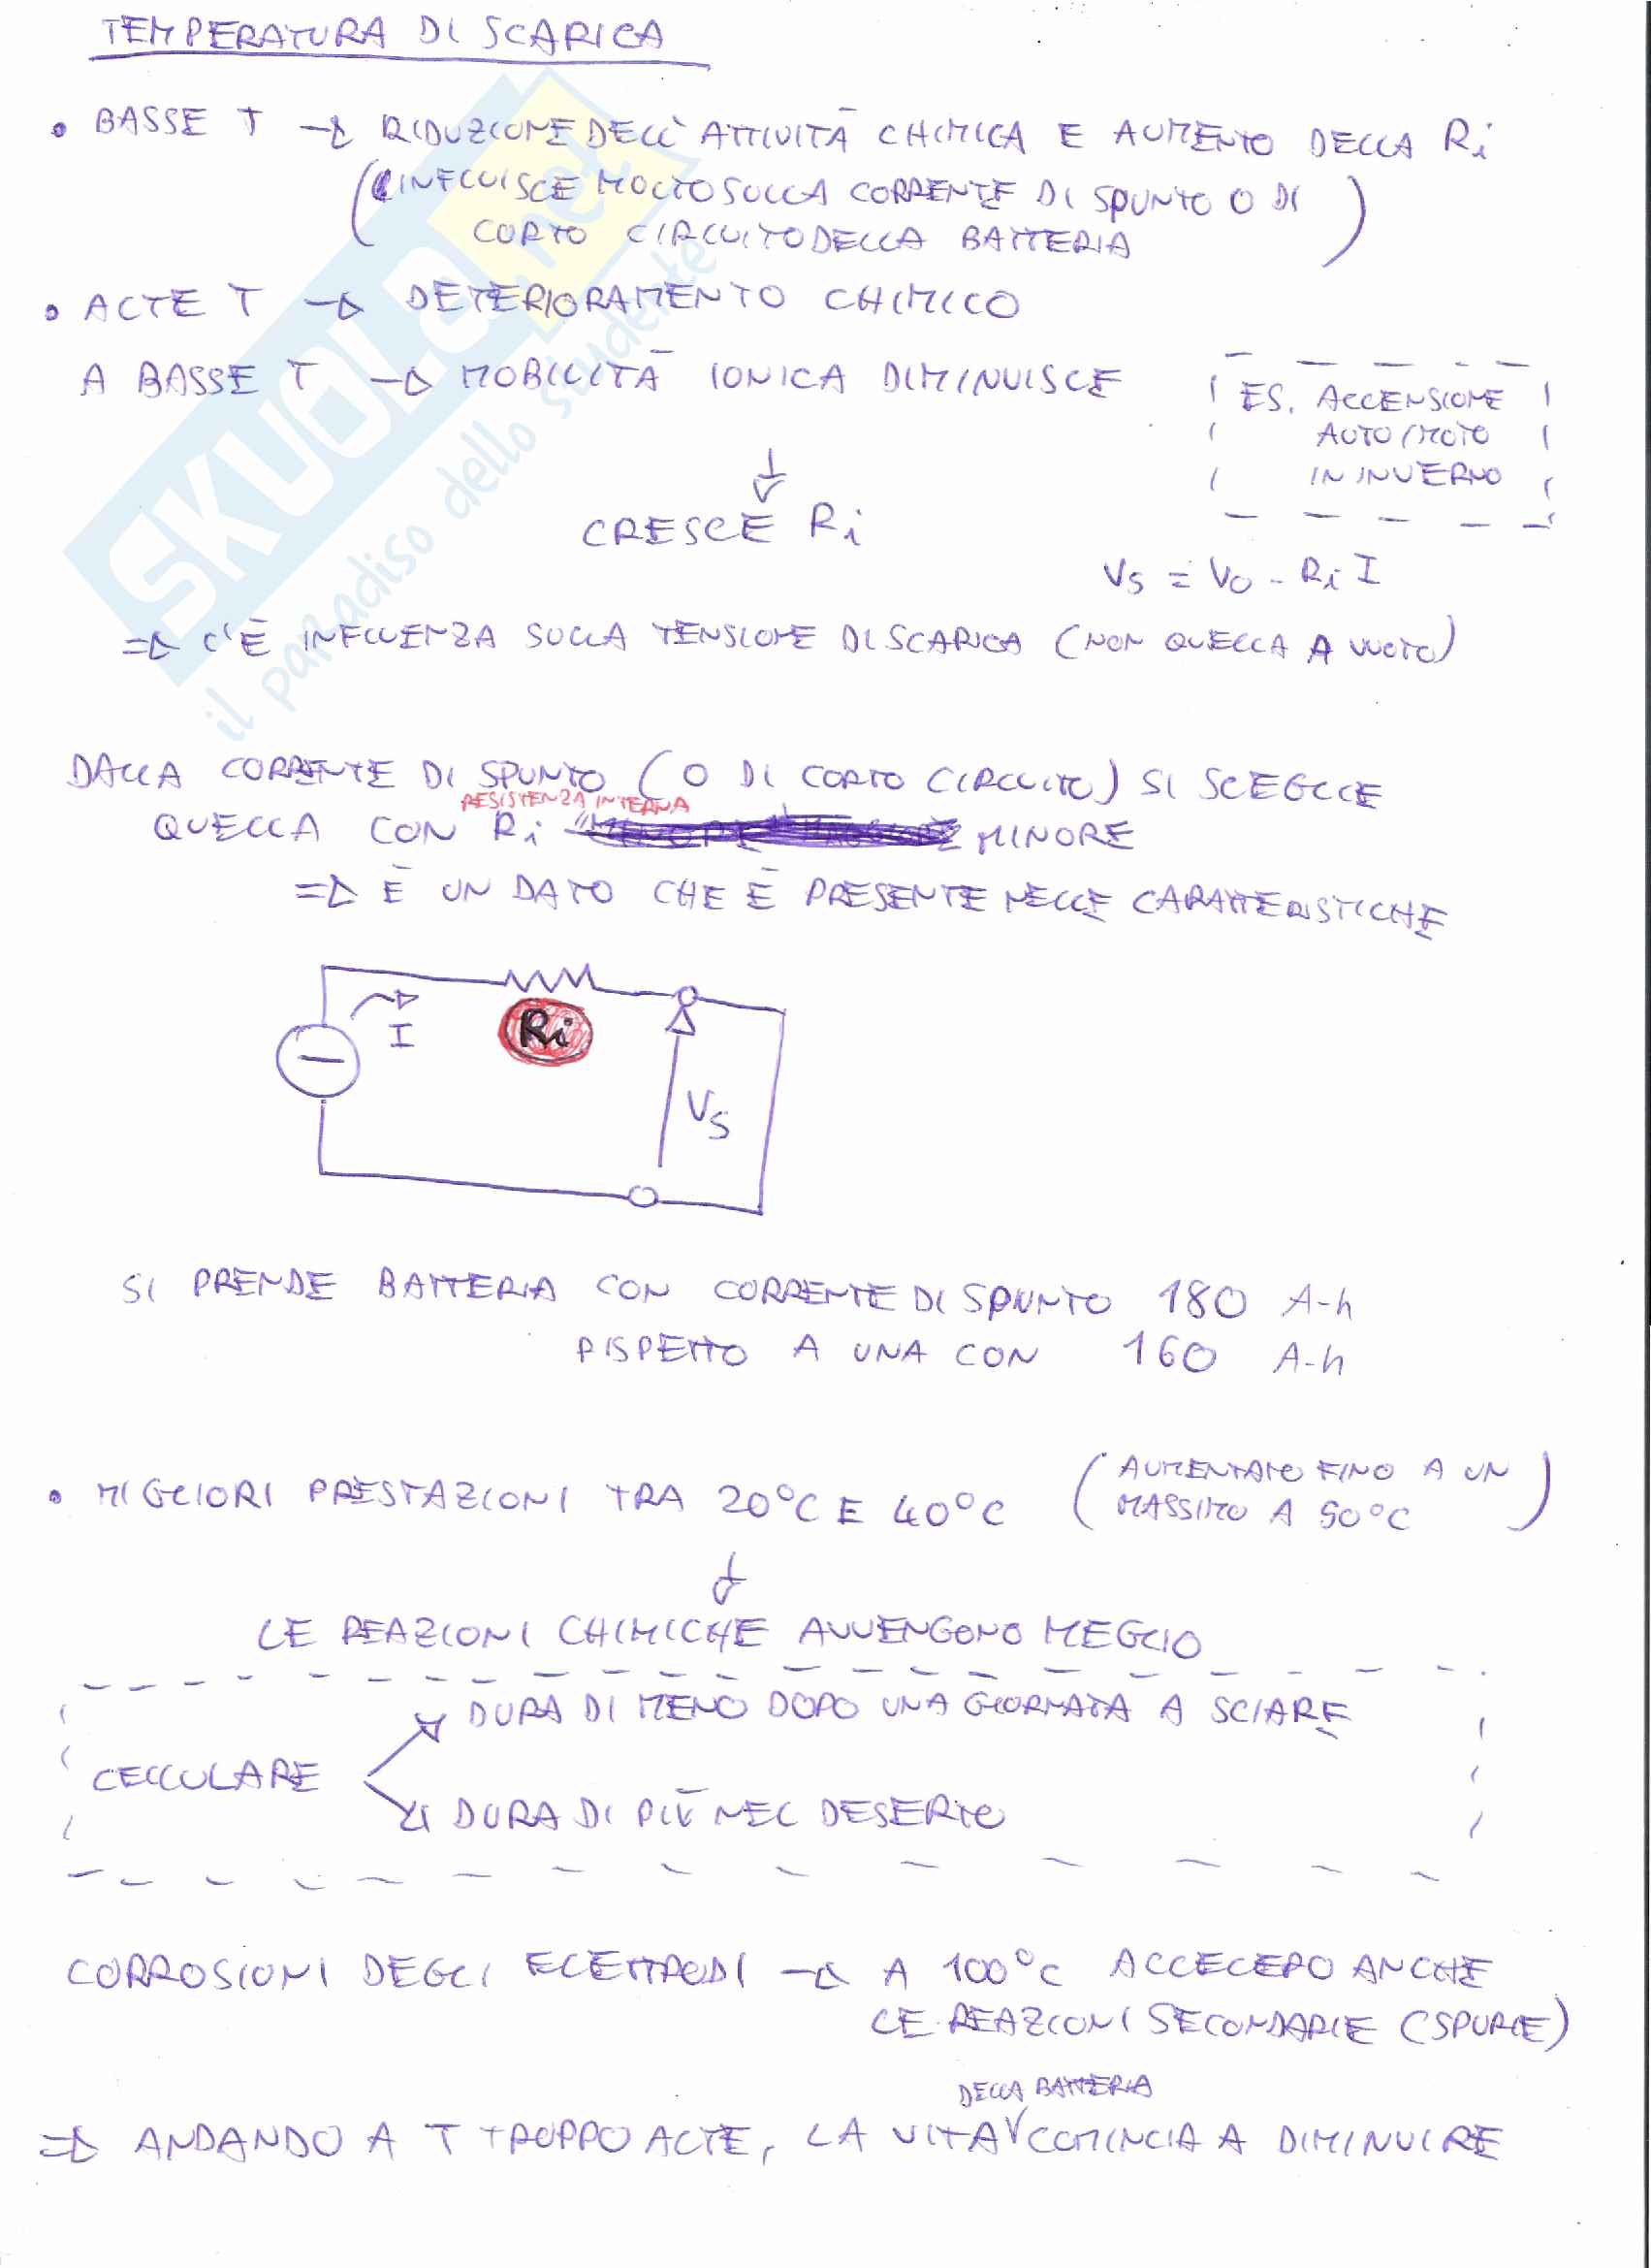 TEMPERATURA DI SCARICA
• BASSE T → RIDUZIONE DELL'ATTIVITÀ CHIMICA E AUMENTO DELLA Ri
(INFLUISCE MOLTO SULLA CORRENTE DI SPUNTO O DI
CORTO CIRCUITO DELLA BATTERIA)
• ALTE T → DETERIORAMENTO CHIMICO
A BASSE T → MOBILITÀ IONICA DIMINUISCE
ES. ACCENSIONE
AUTO/MOTO
IN INVERNO
↓
CRESCE Ri
Vs = V0 - Ri I
⇒ C'È INFLUENZA SULLA TENSIONE DI SCARICA (NON QUELLA A VUOTO)
DALLA CORRENTE DI SPUNTO (O DI CORTO CIRCUITO) SI SCEGLIE
RESISTENZA INTERNA
QUELLA CON Ri MINORE
⇒ È UN DATO CHE È PRESENTE NELLE CARATTERISTICHE
I
Ri
Vs
SI PRENDE BATTERIA CON CORRENTE DI SPUNTO 180 A-h
RISPETTO A UNA CON 160 A-h
• MIGLIORI PRESTAZIONI TRA 20°C E 40°C (AUMENTANO FINO A UN
MASSIMO A 50°C)
↓
LE REAZIONI CHIMICHE AVVENGONO MEGLIO
DURA DI MENO DOPO UNA GIORNATA A SCIARE
CELLULARE
DURA DI PIÙ NEL DESERTO
CORROSIONI DEGLI ELETTRODI → A 100°C ACCELERO ANCHE
LE REAZIONI SECONDARIE (SPURIE)
DELLA BATTERIA
⇒ ANDANDO A T TROPPO ALTE, LA VITA COMINCIA A DIMINUIRE
SKUOLA.net
il paradiso dello studente